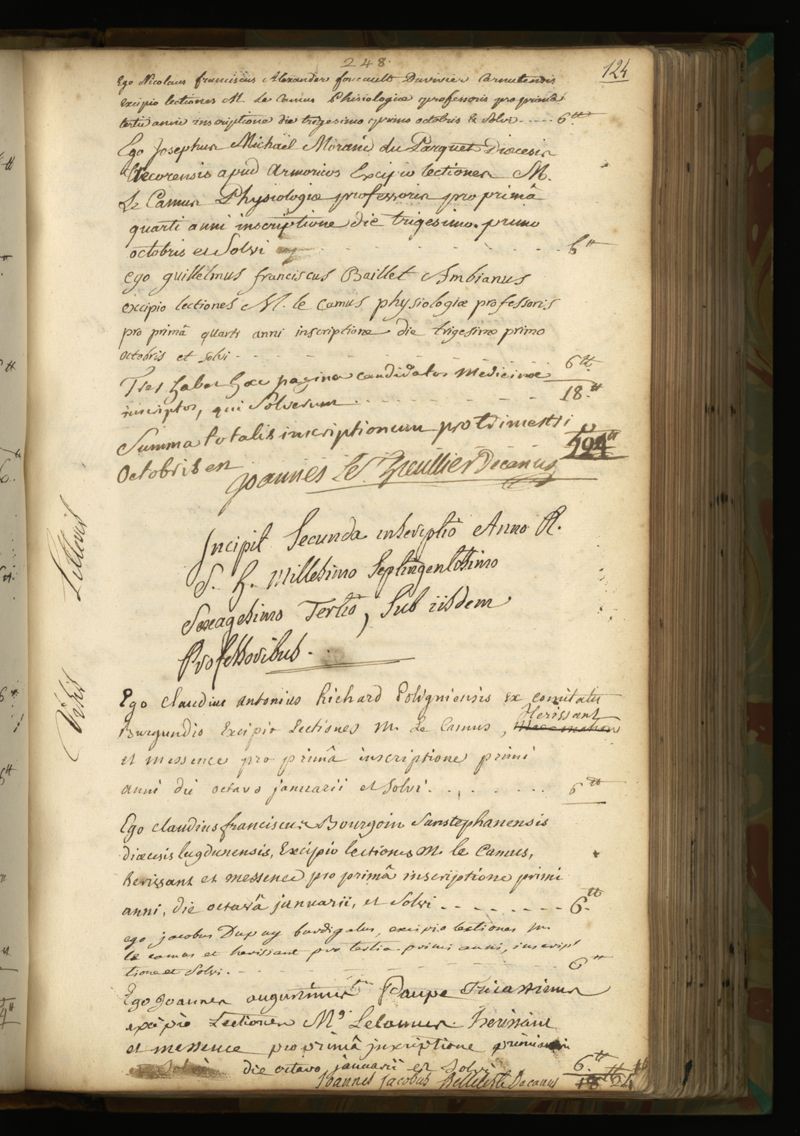 248.
124
Ego Nicolaus franciscus Alexander foucault Duvivier Carnutensis
excipio lectiones M. Le Camus Phisiologiæ professoris pro prima
tertii anni inscriptione die trigesimo primo octobris et Solvi ..... 6 ₶
Ego Josephus Michaël Morand du Parquet Diœcesis
apud Armoricos Excipio lectiones M.
Le Camus Physiologiæ professoris pro primâ
quarti anni inscriptione die trigesimo primo
octobris et Solvi . . . . . . . . 6 ₶
ego guillelmus franciscus Baillet Ambianus
excipio lectiones M. le Camus physiologiæ professoris
pro primâ quarti anni inscriptione die trigesimo primo
octobris et solvi . . . . . . . . 6 ₶
Tres habet hæc pagina candidatos Medicinæ
inscriptos, qui Solverunt . . . . . . . . 18 ₶
Summa totalis inscriptionum pro trimestri
Octobris est 594 ₶
Joannes Le Thieullier Decanus
Incipit Secunda inscriptio Anno R.
S. H. Millesimo Septingentesimo
Sexagesimo Tertio, Sub iisdem
Professoribus.
Ego Claudius antonius Richard Poligniensis ex comitatu
Burgundio Excipio Lectiones M. Le Camus, Herissant
et messence pro primâ inscriptione primi
anni die octavo januarii et Solvi . . . . . . . . 6 ₶
Ego claudius franciscus Bourgoin Sanstephanensis
diœcesis lugdunensis, Excipio lectiones M. le Camus,
herissant et messence pro primâ inscriptione primi
anni, die octavâ januarii, et Solvi . . . . . . . . 6 ₶
ego jacobus Dupuy burdigalus, excipio lectiones M.
le camus et herissant pro tertia primi anni, inscrip
tione et Solvi . . . . . . . . 6 ₶
Ego Joannes augustinus Tricassinus
excipio Lectiones Mri Lecamus herissant
et messence pro primâ inscriptione primi anni
die octavo januarii et solvi 6 ₶
Joannes Jacobus Belleteste Decanus 18 ₶ 24 ₶
Visis
Litteris